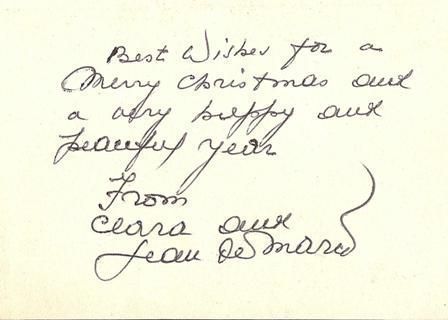 Best Wishes for a
Merry Christmas and
a very happy and
peaceful year
From
Clara and
Jean de Marco